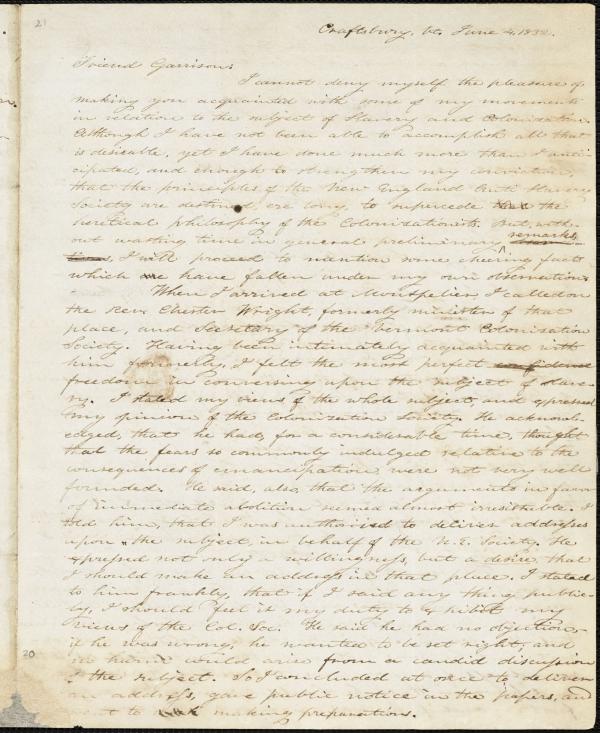 21
Craftsbury, Vt. June 4, 1832.
Friend Garrison:
I cannot deny myself the pleasure of
making you acquainted with some of my movements
in relation to the subject of Slavery and Colonization.
Although I have not been able to accomplish all that
is desirable, yet I have done much more than I anti-
cipated, and enough to strengthen my conviction,
that the principles of the New England Anti Slavery
Society are destined, ere long, to supercede the
heretical philosophy of the Colonizationists. But, with-
out wasting time in general preliminary remarks,
I will proceed to mention some cheering facts
which have fallen under my own observation.
When I arrived at Montpelier, I called on
the Rev. Chester Wright, formerly minister of that
place, and Secretary of the Vermont Colonization
Society. Having been intimately acquainted with
him formerly, I felt the most perfect confidence
freedom in conversing upon the subject of slave-
ry. I stated my views of the whole subject, and expressed
my opinion of the Colonization Society. He acknowl-
edged, that he had, for a considerable time, thought
that the fears so commonly indulged relative to the
consequences of emancipation, were not very well
founded. He said, also, that the arguments in favor
of immediate abolition seemed almost irresistible. I
told him, that I was authorised to deliver addresses
upon the subject, in behalf of the N. E. Society. He
expressed not only a willingness, but a desire, that
I should make an address in that place. I stated
to him frankly, that if I said any thing public-
ly, I should feel it my duty to exhibit my
views of the Col. Soc. He said he had no objection,
if he was wrong, he wanted to be set right, and
no harm would arise from a candid discussion
of the subject. So I concluded at once to deliver
an address, gave public notice in the papers, and
went to making preparations.
20